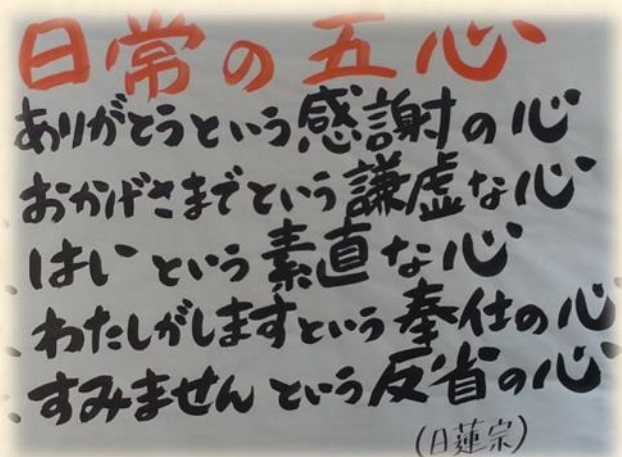 日常の五心
ありがとうという感謝の心
おかげさまでという謙虚な心
はいという素直な心
わたしがしますという奉仕の心
すみませんという反省の心
(日蓮宗)